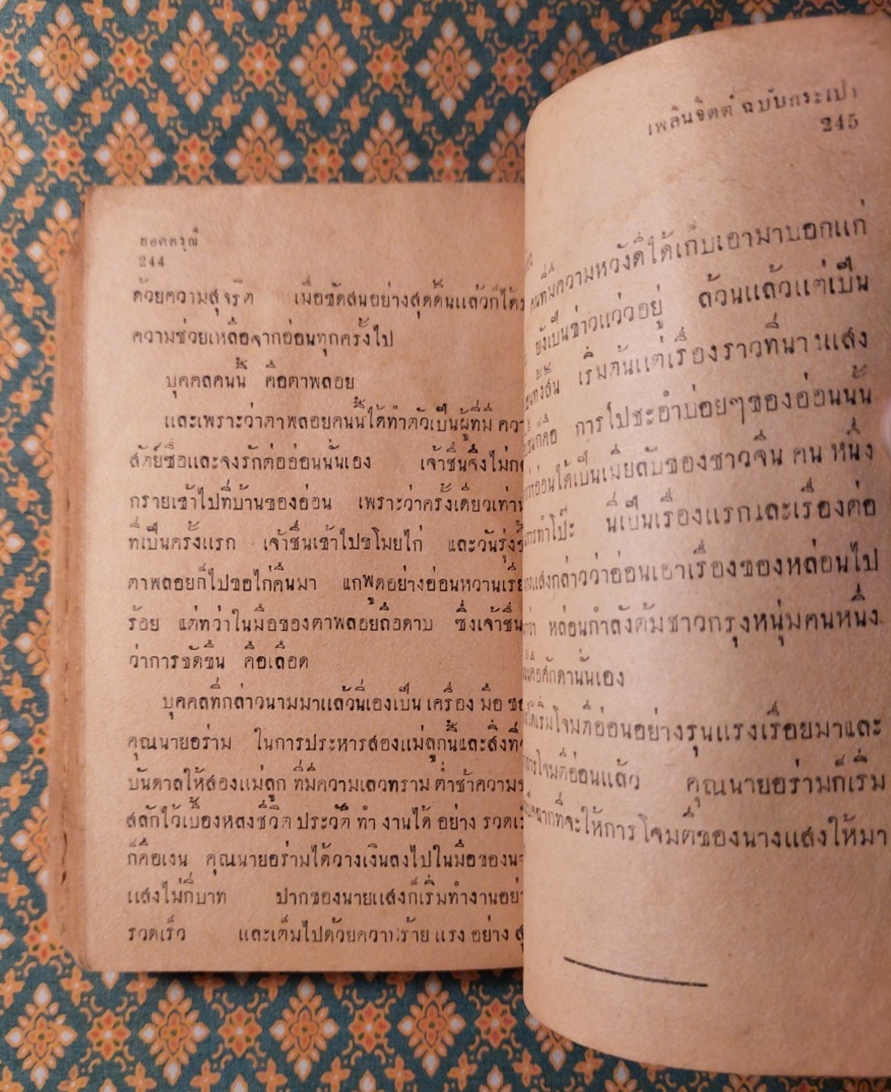 ยอดดรุณี
244
ด้วยความสุจริต เมื่อขัดสนอย่างสุดดิ้นแล้วก็ได้
ความช่วยเหลือจากอ่อนทุกครั้งไป
บุคคลคนนี้ คือตาพลอย
และเพราะว่าตาพลอยคนนี้ได้ทำตัวเป็นผู้ที่มี
สัตย์ซื่อและจงรักต่ออ่อนนั่นเอง เจ้าชื่นจึงไม่
กรายเข้าไปที่บ้านของอ่อน เพราะว่าครั้งเดียว
ที่เป็นครั้งแรก เจ้าชื่นเข้าไปขโมยไก่ และวันรุ่ง
ตาพลอยก็ไปขอไก่คืนมา แกพูดอย่างอ่อนหวาน
ร้อย แต่ทว่าในมือของตาพลอยถือดาบ ซึ่งเจ้าชื่น
ว่าการขัดขืน คือเลือด
บุคคลที่กล่าวนามมาแล้วนี่เองเป็น เครื่อง มือ
คุณนายอร่าม ในการประหารสองแม่ลูกนี้และสิ่งที่
บันดาลให้สองแม่ลูก ที่มีความเลวทราม ต่ำช้า
สลักไว้เบื้องหลังชีวิต ประวัติ ทำ งานได้ อย่าง
ก็คือเงิน คุณนายอร่ามได้วางเงินลงไปในมือของ
แสงไม่กี่บาท ปากของนายแสงก็เริ่มทำงาน
รวดเร็ว และเต็มไปด้วยความร้าย แรง อย่าง
เพลินจิตต์ ฉบับกระเป๋า
245
ความหวังดีได้เก็บเอามาบอกแก่
ยังเป็นข่าวแว่วอยู่ ล้วนแล้วแต่เป็น
ทั้งสิ้น เริ่มต้นแต่เรื่องราวที่นางแสง
ก็คือ การไปชะอำบ่อยๆของอ่อนนั้น
อ่อนได้เป็นเมียลับของชาวจีน คน หนึ่ง
การทำโป๊ะ นี่เป็นเรื่องแรกและเรื่องต่อ
แสงกล่าวว่าอ่อนเอาเรื่องของหล่อนไป
ว่า หล่อนกำลังต้มชาวกรุงหนุ่มคนหนึ่ง
คือศักดานั่นเอง
ได้เริ่มโจมตีอ่อนอย่างรุนแรงเรื่อยมาและ
การโจมตีอ่อนแล้ว คุณนายอร่ามก็เริ่ม
ฉากที่จะให้การโจมตีของนางแสงให้มา